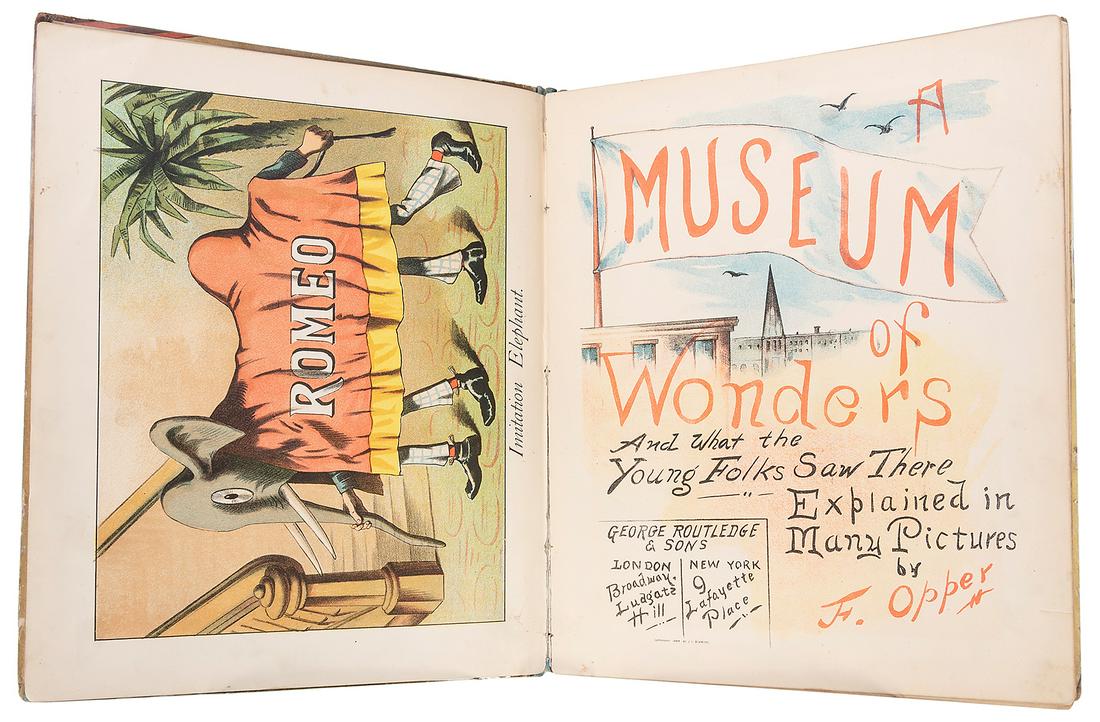 ROMEO
Imitation Elephant.
A
MUSEUM
of
Wonders
And What the
Young Folks Saw There
Explained in
Many Pictures
by
F. Opper
GEORGE ROUTLEDGE
& SONS
LONDON
Broadway.
Ludgate
Hill
NEW YORK
9
Lafayette
Place